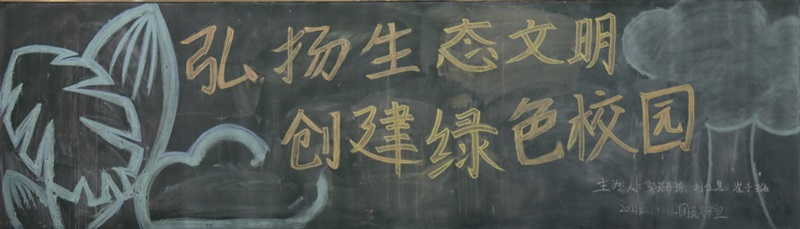 弘扬生态文明
创建绿色校园
主办人: